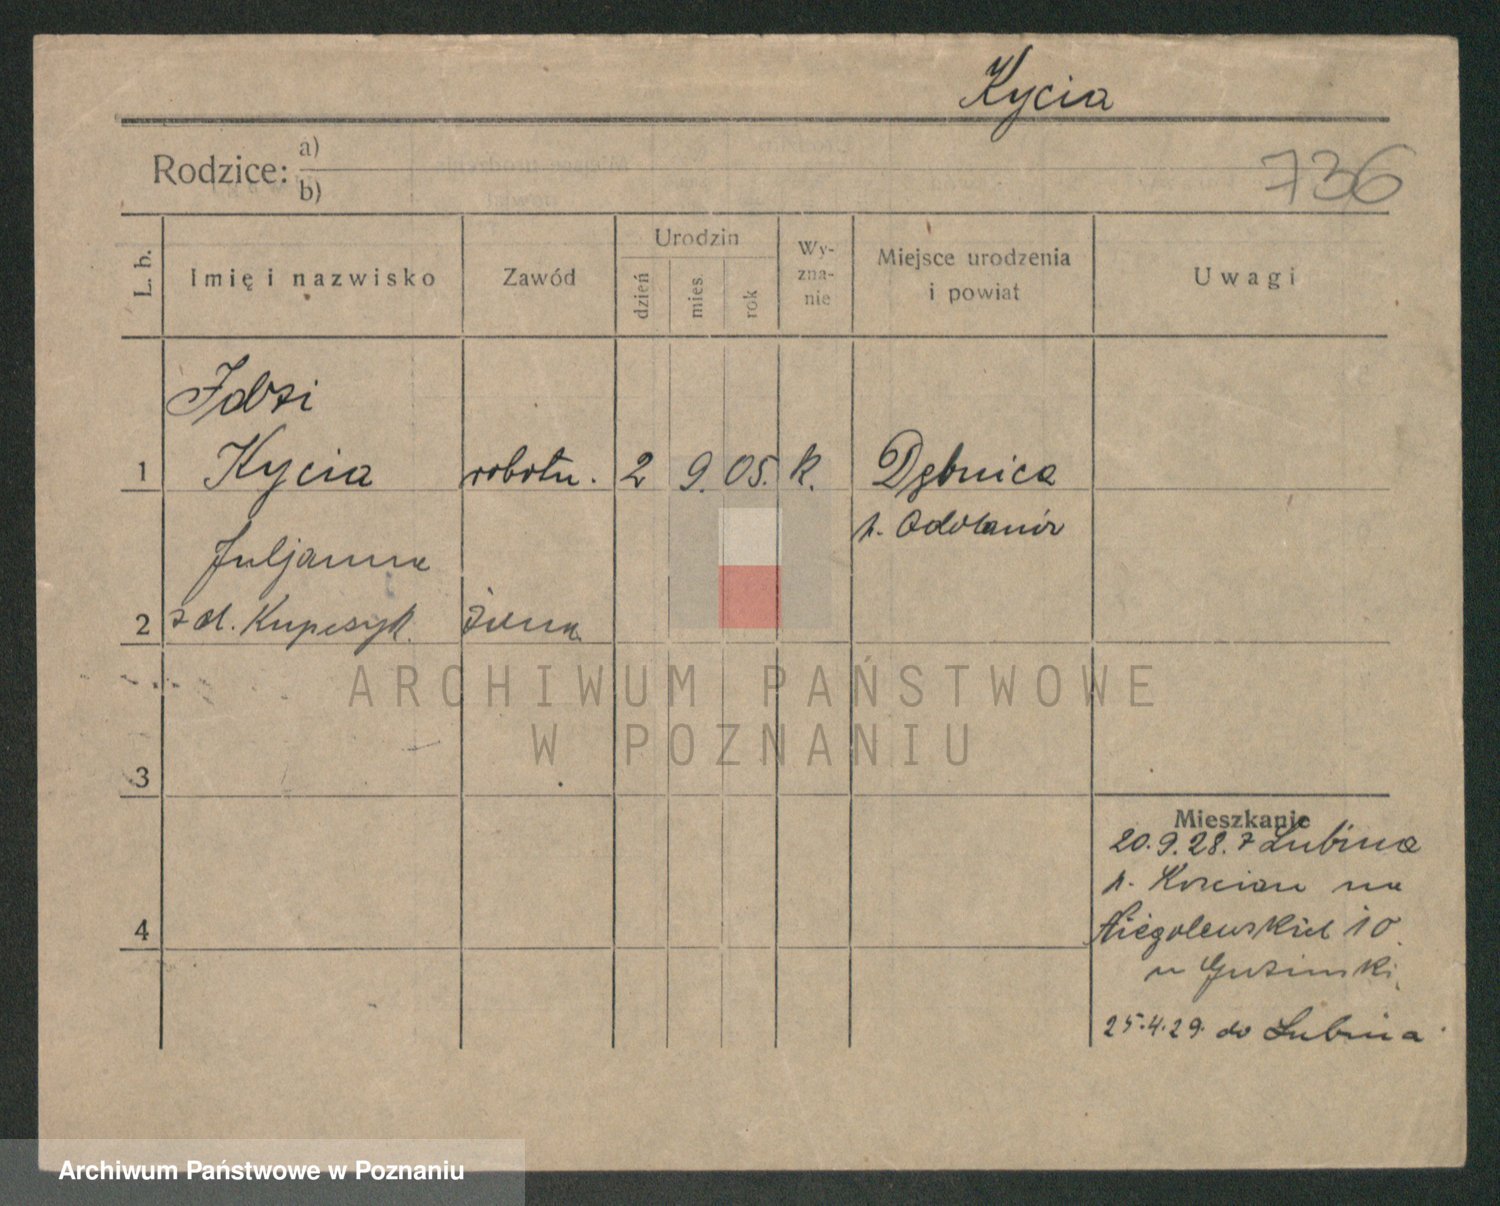 Kycia
Rodzice: a)
b)
736
L. b.
Imię i nazwisko
Zawód
Urodzin
dzień
mies.
rok
Wy-
zna-
nie
Miejsce urodzenia
i powiat
Uwagi
Idzi
1 Kycia robotn. 2 9. 05. k. Dębnica
p. Odolanów
Juljanna
2 z d. Kupczyk. żona
ARCHIWUM PAŃSTWOWE
W POZNANIU
3
Mieszkanie
20.9.28. z Lubina
p. Kościan na
4 Niegolewskich 10
u
25.4.29. do Lubina
Archiwum Państwowe w Poznaniu